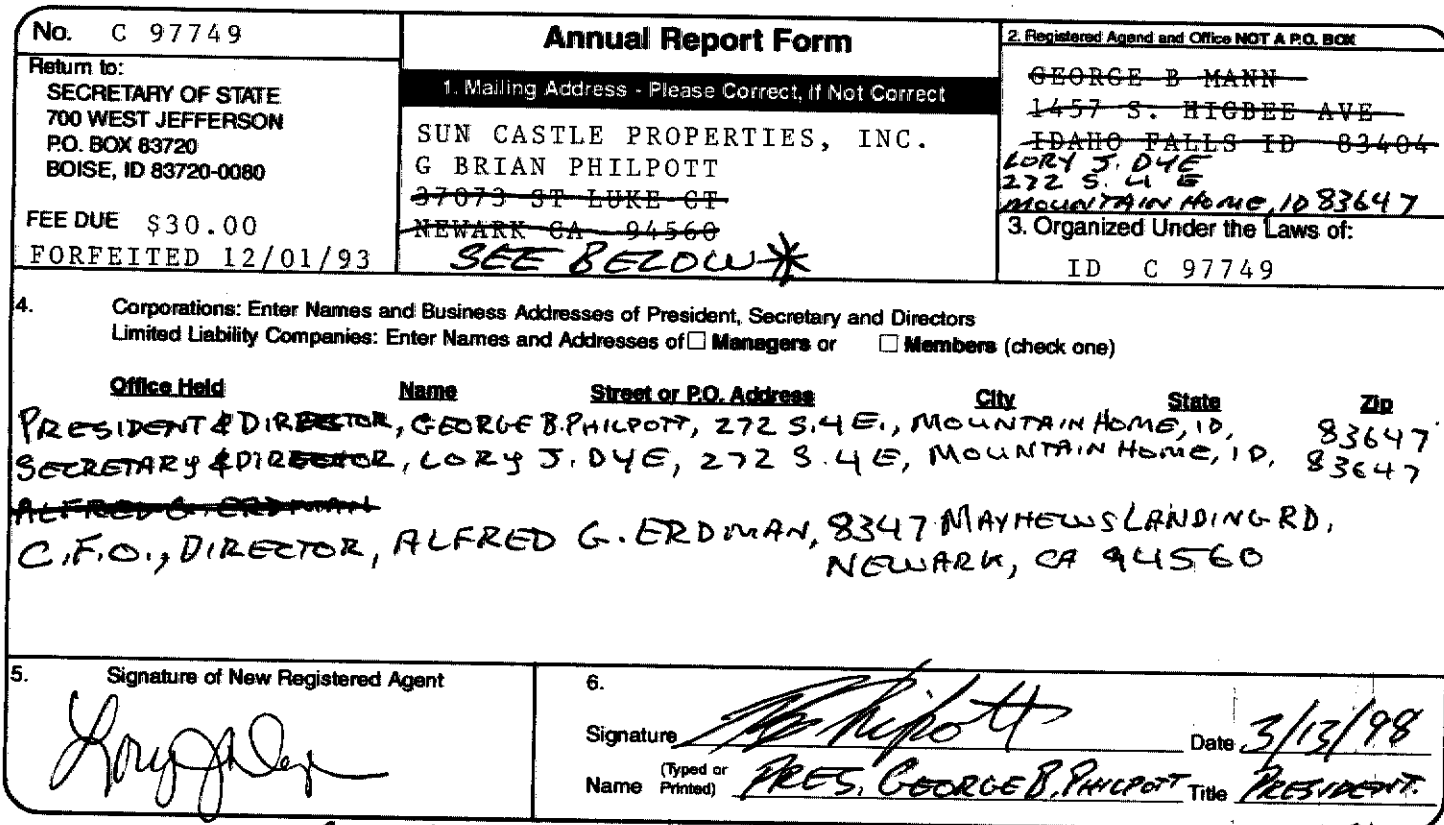 No. C 97749
Return to:
SECRETARY OF STATE
700 WEST JEFFERSON
P.O. BOX 83720
BOISE, ID 83720-0080
FEE DUE $30.00
FORFEITED 12/01/93
Annual Report Form
1. Mailing Address - Please Correct, If Not Correct
SUN CASTLE PROPERTIES, INC.
G BRIAN PHILPOTT
37073 ST LUKE CT
NEWARK CA 94560
SEE BELOW *
2. Registered Agend and Office NOT A P.O. BOX
GEORGE B MANN
1457 S. HIGBEE AVE
IDAHO FALLS ID 83404
LORY J. DYE
272 S. 4 E
MOUNTAIN HOME, ID 83647
3. Organized Under the Laws of:
ID C 97749
4. Corporations: Enter Names and Business Addresses of President, Secretary and Directors
Limited Liability Companies: Enter Names and Addresses of ☐ Managers or ☐ Members (check one)
Office Held Name Street or P.O. Address City State Zip
PRESIDENT & DIRECTOR, GEORGE B. PHILPOTT, 272 S. 4 E., MOUNTAIN HOME, ID, 83647
SECRETARY & DIRECTOR, LORY J. DYE, 272 S. 4 E, MOUNTAIN HOME, ID, 83647
ALFRED G. ERDMAN
C.F.O., DIRECTOR, ALFRED G. ERDMAN, 8347 MAYHEWS LANDING RD,
NEWARK, CA 94560
5. Signature of New Registered Agent
Lory J Dye
6.
Signature GB Philpott Date 3/13/98
Name (Typed or Printed) PRES. GEORGE B. PHILPOTT Title PRESIDENT.